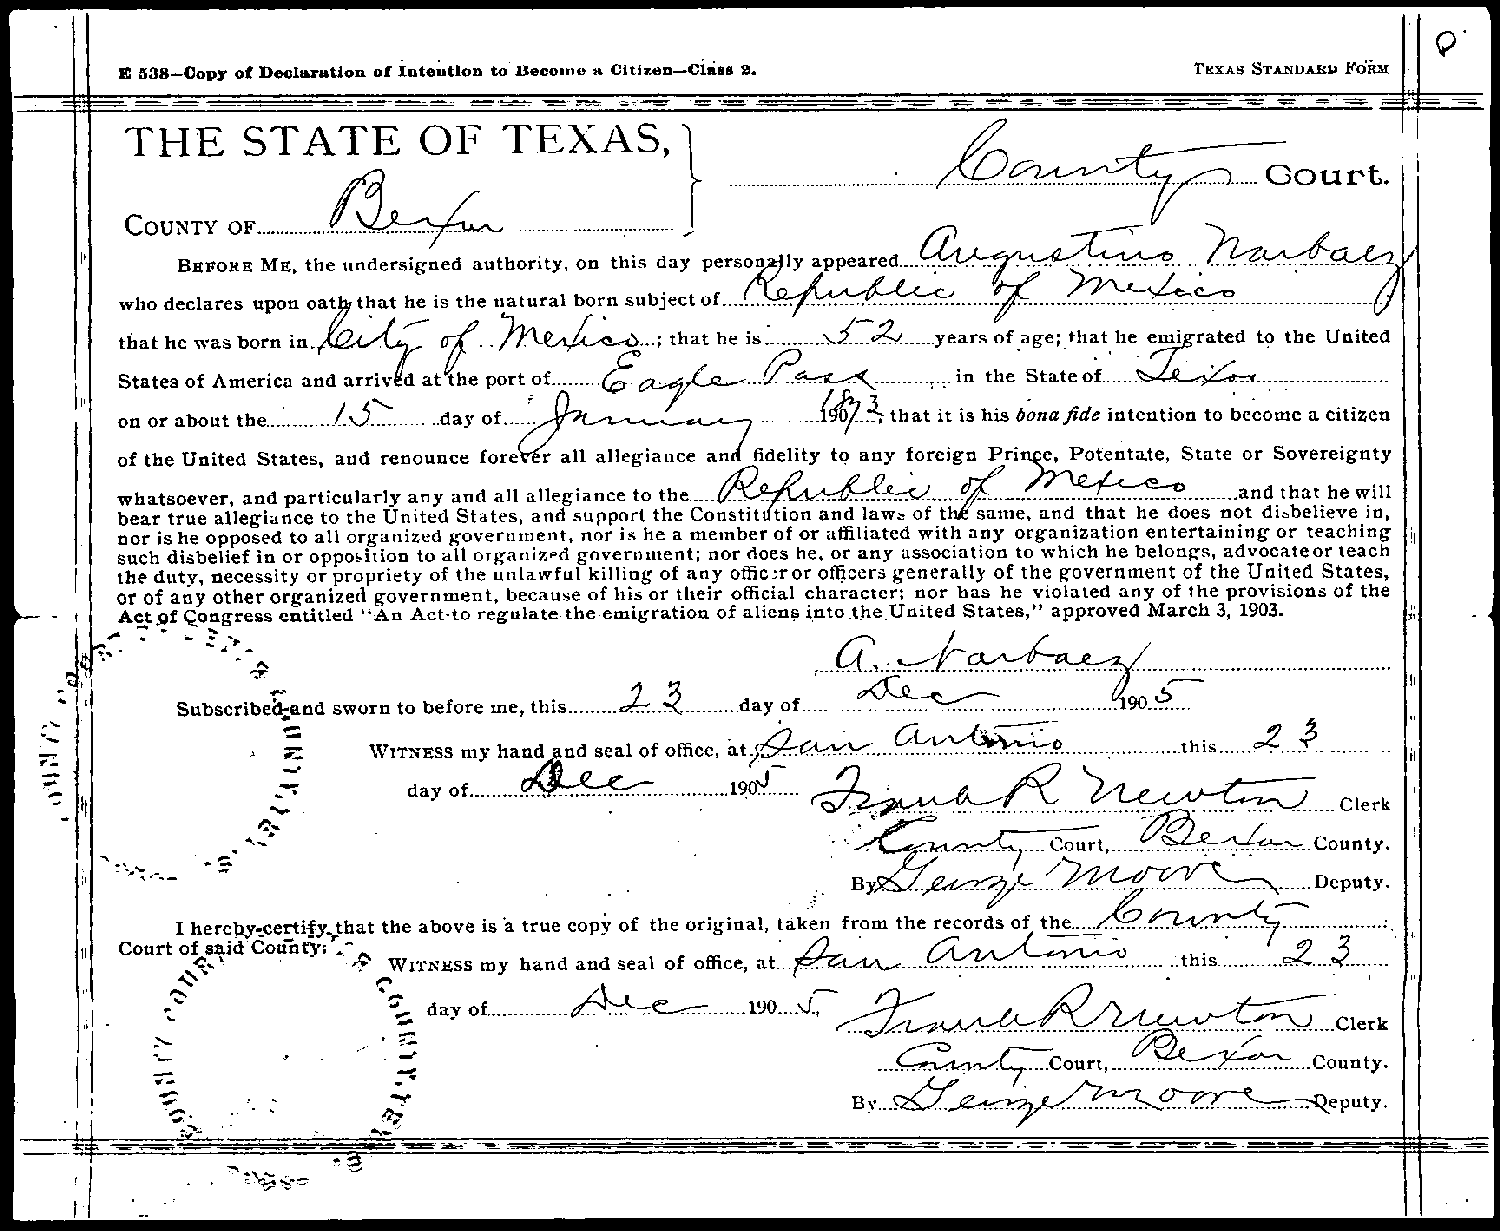 E 538—Copy of Declaration of Intention to Become a Citizen—Class 2. TEXAS STANDARD FORM
THE STATE OF TEXAS,
County Court.
COUNTY OF Bexar
BEFORE ME, the undersigned authority, on this day personally appeared Augustino Narbaez
who declares upon oath that he is the natural born subject of Republic of Mexico
that he was born in City of Mexico; that he is 52 years of age; that he emigrated to the United
States of America and arrived at the port of Eagle Pass in the State of Texas
on or about the 15 day of January 1873, that it is his bona fide intention to become a citizen
of the United States, and renounce forever all allegiance and fidelity to any foreign Prince, Potentate, State or Sovereignty
whatsoever, and particularly any and all allegiance to the Republic of Mexico and that he will
bear true allegiance to the United States, and support the Constitution and laws of the same, and that he does not disbelieve in,
nor is he opposed to all organized government, nor is he a member of or affiliated with any organization entertaining or teaching
such disbelief in or opposition to all organized government; nor does he, or any association to which he belongs, advocate or teach
the duty, necessity or propriety of the unlawful killing of any officer or officers generally of the government of the United States,
or of any other organized government, because of his or their official character; nor has he violated any of the provisions of the
Act of Congress entitled "An Act to regulate the emigration of aliens into the United States," approved March 3, 1903.
A. Narbaez
Subscribed and sworn to before me, this 23 day of Dec 1905
WITNESS my hand and seal of office, at San Antonio this 23
day of Dec 1905 Frank R Newton Clerk
County Court, Bexar County.
By George Moore Deputy.
I hereby certify that the above is a true copy of the original, taken from the records of the County
Court of said County:
WITNESS my hand and seal of office, at San Antonio this 23
day of Dec 1905, Frank R Newton Clerk
County Court, Bexar County.
By George Moore Deputy.